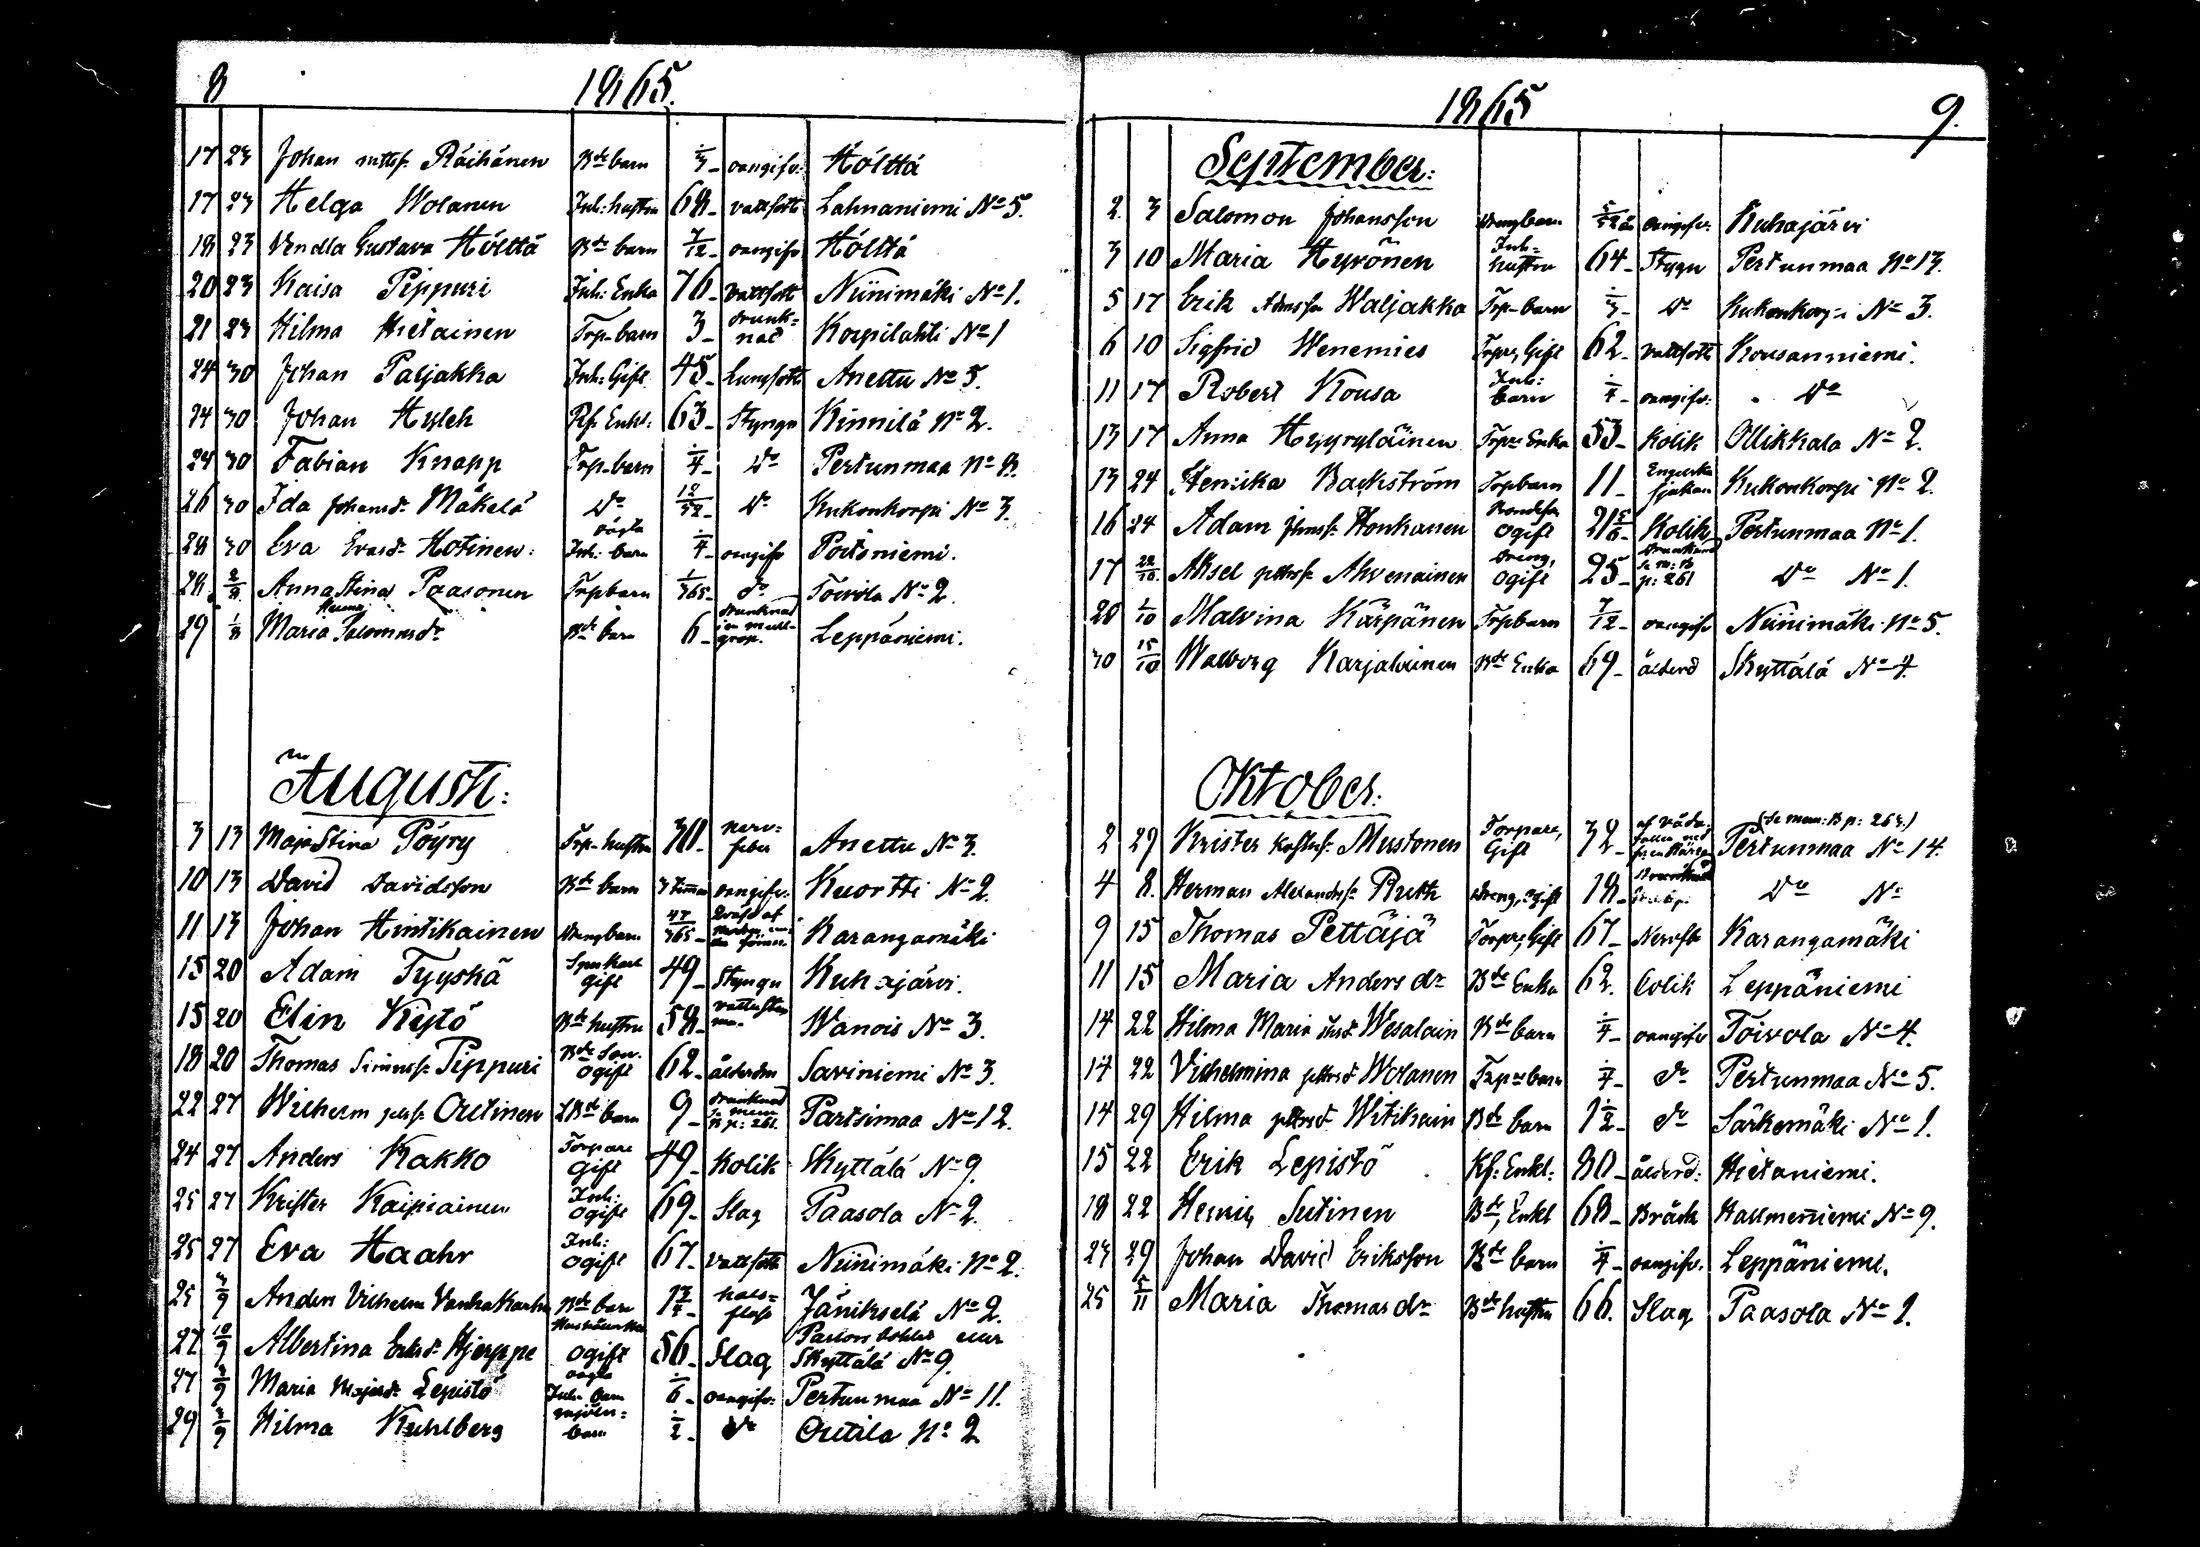 8 1865.
17 23 Johan mttss. Räihänen Bde barn 1/3 oangifv: Hölttä
17 23 Helga Wolanen Inh: hustru 68 vattsott Lahnaniemi No 5.
18 23 Vendla Gustava Hölttä Bde barn 7/12 oangifv Hölttä
20 23 Kaisa Pippuri Inh: Enka 76 vattsott Niinimäki No 1.
21 23 Hilma Hietainen Trp-barn 3 drunknad Korpilahti No 1
24 30 Johan Paljakka Inh: Gift 45 Lungsott Anettu No 5.
24 30 Johan Hyleh Kf. Enkl: 63 Styngn Kinnilä No 2.
24 30 Fabian Knapp Trp-barn 1/4 Do Pertunmaa No 8.
26 30 Ida Johansdr Mäkelä Do 12/52 Do Kukonkorpi No 3.
28 30 Eva Evasdr Hotinen: oägta Inh: barn 1/4 oangifv Poitsniemi.
28 2/8 Anna Stina Paasonen Trpbarn 1/365 do Toivola No 2.
29 1/8 Maria Salomonsdr Bde barn 6 drunknad i en mull-grop. Leppäniemi.
Augusti:
3 13 Maja Stina Pöyry Trp-hustru 30 nerv-feber Anettu No 3.
10 13 David Davidsson Bde barn 3 timmar oangifv. Kuortti No 2.
11 13 Johan Hintikainen Drengbarn 47/365 Karangamäki
15 20 Adam Tyyskä gift 49 Styngn Kuhajärvi.
15 20 Elin Kystö Bde hustru 58 Wanois No 3.
18 20 Thomas Simonss. Pippuri Bde Son. ogift 62 ålderdm Saviniemi No 3.
22 27 Wilhelm Outinen Bde barn 9 drunknad Se mem B p: 261. Partsimaa No 12.
24 27 Anders Kakko Torpare Gift 49 Kolik Skyttälä No 9.
25 27 Krister Kaipiainen Inh: ogift 69 Slag Paasola No 2.
25 27 Eva Haahr Inh: ogift 67 vattsott Niinimäki No 2.
25 3/9 Anders Vilhelm Vanhakartano Bde barn hals-fluss Jänikselä No 2.
27 10/9 Albertina Eriksdr Hjerppe ogift 56 Slag Skyttälä No 9.
27 3/9 Maria Majasdr Lepistö oägta Inh. barn 1/6 oangifv: Pertunmaa No 11.
29 3/9 Hilma Kuhlberg mjöln: barn 1/2 do Outila No 2
1865 9.
September:
2. 3 Salomon Johansson Drengbarn oangifv: Kuhajärvi
3 10 Maria Hyrönen Inh: hustru 64 Stygn Pertunmaa No 13.
5 17 Erik Adamss. Waljakka Trp-barn 1/3 Do Kukonkorpi No 3.
6 10 Sigfrid Wenemies Trpre, Gift 62 vattsott Kousanniemi.
11 17 Robert Kousa Inh: barn 1/4 oangifv: Do
13 17 Anna Hyyryläinen Trpre Enka 53 Kolik Ollikkala No 2.
13 24 Henrika Backström Trpbarn 11 Engelska sjukan Kukonkorpi No 2.
16 24 Adam Johnss. Honkanen Bondeson ogift 21 5/6 Kolik Pertunmaa No 1.
17 22/10 Aksel Ahvenainen Dreng, ogift 25 drunknad Se m: B p: 261 Do No 1.
20 1/10 Malvina Kärpänen Trpbarn 7/12 oangifv Niinimäki No 5.
30 15/10 Walborg Karjalainen Bde Enka 69 ålderd Skyttälä No 4.
Oktober:
2 29 Krister Mustonen Torpare, Gift 32 af våda (Se mem: B p: 263.) Pertunmaa No 14.
4 8. Herman Alexanderss. Ruth Dreng, ogift 18 Drunknad Do No
9 15 Thomas Pettäjä Torpre, Gift 67 Nervfb Karangamäki
11 15 Maria Andersdr Bde Enka 62. Colik Leppäniemi
14 22 Hilma Maria Wesalain Bde barn 1/4 oangifv Toivola No 4.
14 22 Vilhelmina Wolanen Trpre barn 1/4 do Pertunmaa No 5.
14 29 Hilma Witikain Bde barn 1 1/2 do Särkemäki No 1.
15 22 Erik Lepistö Kf: Enkl: 80 ålderd: Hietaniemi.
18 22 Henrik Sutinen Bde, Enkl 68 Bråck Hallmenniemi No 9.
23 29 Johan David Eriksson Bde barn 1/4 oangifv. Leppäniemi.
25 5/11 Maria Thomasdr Bde hustru 66. Slag Paasola No 1.